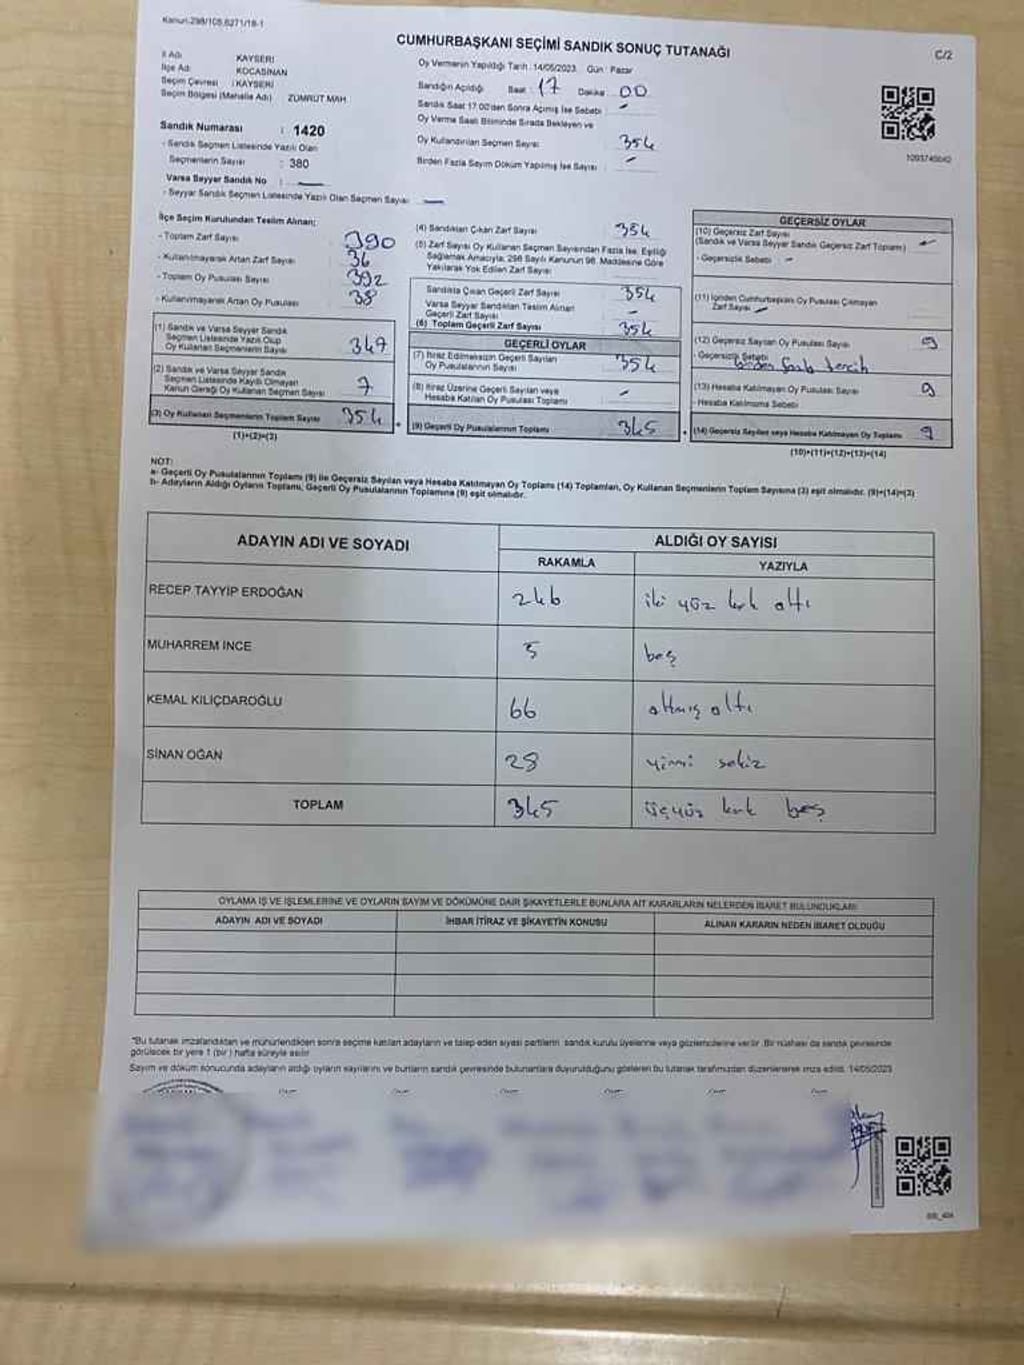 Kanun:298/105,6271/18-1
CUMHURBAŞKANI SEÇİMİ SANDIK SONUÇ TUTANAĞI
C/2
İl Adı KAYSERİ
İlçe Adı KOCASİNAN
Seçim Çevresi : KAYSERİ
Seçim Bölgesi (Mahalle Adı) ZÜMRÜT MAH.
Sandık Numarası : 1420
- Sandık Seçmen Listesinde Yazılı Olan
Seçmenlerin Sayısı : 380
Varsa Seyyar Sandık No : —
- Seyyar Sandık Seçmen Listesinde Yazılı Olan Seçmen Sayısı —
Oy Vermenin Yapıldığı Tarih : 14/05/2023 Gün : Pazar
Sandığın Açıldığı Saat : 17 Dakika : 00
Sandık Saat 17:00'den Sonra Açılmış İse Sebebi : -
Oy Verme Saati Bitiminde Sırada Bekleyen ve
Oy Kullandırılan Seçmen Sayısı 354
Birden Fazla Sayım Döküm Yapılmış İse Sayısı : -
1093745042
İlçe Seçim Kurulundan Teslim Alınan;
- Toplam Zarf Sayısı 390
- Kullanılmayarak Artan Zarf Sayısı 36
- Toplam Oy Pusulası Sayısı 392
- Kullanılmayarak Artan Oy Pusulası 38
(1) Sandık ve Varsa Seyyar Sandık
Seçmen Listesinde Yazılı Olup
Oy Kullanan Seçmenlerin Sayısı 347
(2) Sandık ve Varsa Seyyar Sandık
Seçmen Listesinde Kayıtlı Olmayan
Kanun Gereği Oy Kullanan Seçmen Sayısı 7
(3) Oy Kullanan Seçmenlerin Toplam Sayısı 354
(1)+(2)=(3)
(4) Sandıktan Çıkan Zarf Sayısı 354
(5) Zarf Sayısı Oy Kullanan Seçmen Sayısından Fazla İse, Eşitliği
Sağlamak Amacıyla, 298 Sayılı Kanunun 98. Maddesine Göre
Yakılarak Yok Edilen Zarf Sayısı
Sandıkta Çıkan Geçerli Zarf Sayısı 354
Varsa Seyyar Sandıktan Teslim Alınan
Geçerli Zarf Sayısı -
(6) Toplam Geçerli Zarf Sayısı 354
GEÇERLİ OYLAR
(7) İtiraz Edilmeksizin Geçerli Sayılan
Oy Pusulalarının Sayısı 354
(8) İtiraz Üzerine Geçerli Sayılan veya
Hesaba Katılan Oy Pusulası Toplamı -
(9) Geçerli Oy Pusulalarının Toplamı 345
GEÇERSİZ OYLAR
(10) Geçersiz Zarf Sayısı
(Sandık ve Varsa Seyyar Sandık Geçersiz Zarf Toplamı) -
- Geçersizlik Sebebi : -
(11) İçinden Cumhurbaşkanı Oy Pusulası Çıkmayan
Zarf Sayısı -
(12) Geçersiz Sayılan Oy Pusulası Sayısı 9
- Geçersizlik Sebebi birden fazla tercih
(13) Hesaba Katılmayan Oy Pusulası Sayısı 9
- Hesaba Katılmama Sebebi
(14) Geçersiz Sayılan veya Hesaba Katılmayan Oy Toplamı 9
(10)+(11)+(12)+(13)=(14)
NOT:
a- Geçerli Oy Pusulalarının Toplamı (9) ile Geçersiz Sayılan veya Hesaba Katılmayan Oy Toplamı (14) Toplamları, Oy Kullanan Seçmenlerin Toplam Sayısına (3) eşit olmalıdır. (9)+(14)=(3)
b- Adayların Aldığı Oyların Toplamı, Geçerli Oy Pusulalarının Toplamına (9) eşit olmalıdır.
ADAYIN ADI VE SOYADI ALDIĞI OY SAYISI
RAKAMLA YAZIYLA
RECEP TAYYİP ERDOĞAN 246 iki yüz kırk altı
MUHARREM İNCE 5 beş
KEMAL KILIÇDAROĞLU 66 altmış altı
SİNAN OĞAN 28 yirmi sekiz
TOPLAM 345 üçyüz kırk beş
OYLAMA İŞ VE İŞLEMLERİNE VE OYLARIN SAYIM VE DÖKÜMÜNE DAİR ŞİKAYETLERLE BUNLARA AİT KARARLARIN NELERDEN İBARET BULUNDUKLARI
ADAYIN ADI VE SOYADI İHBAR İTİRAZ VE ŞİKAYETİN KONUSU ALINAN KARARIN NEDEN İBARET OLDUĞU
*Bu tutanak imzalandıktan ve mühürlendikten sonra seçime katılan adayların ve talep eden siyasi partilerin sandık kurulu üyelerine veya gözlemcilerine verilir. Bir nüshası da sandık çevresinde
görülecek bir yere 1 (bir) hafta süreyle asılır
Sayım ve döküm sonucunda adayların aldığı oyların sayılarını ve bunların sandık çevresinde bulunanlara duyurulduğunu gösteren bu tutanak tarafımızdan düzenlenerek imza edildi. 14/05/2023